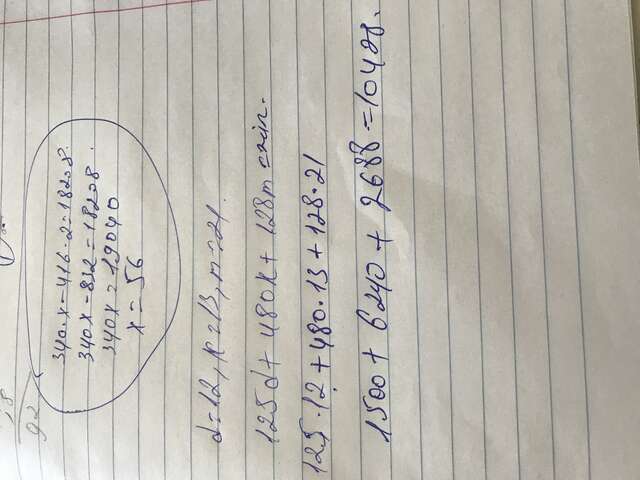 340·x-416·2=18208.
340x-832=18208.
340x=19040
x=56
d=12, k=13, m=21.
125d+480k+128m=
125·12+480·13+128·21
1500+6240+2688=10428.